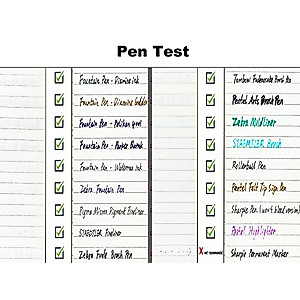 Pen Test
Fountain Pen - Diamine Ink
Fountain Pen - Diamine Golden
Fountain Pen - Pelikan 4001
Fountain Pen -
Fountain Pen - Waterman Ink
Zebra Fountain Pen
Sigma Micron Pigment Fineliner
STAEDTLER Fineliner
Zebra Funle Brush Pen
Tombow Fudenosuke Brush Pen
Pentel Arts Brush Pen
Zebra Mildliner
STAEDTLER Brush
Rollerball Pen
Pentel Felt Tip Sign Pen
Sharpie Pen (won't bleed version)
Pentel Highlighter
X not recommended
Sharpie Permanent Marker